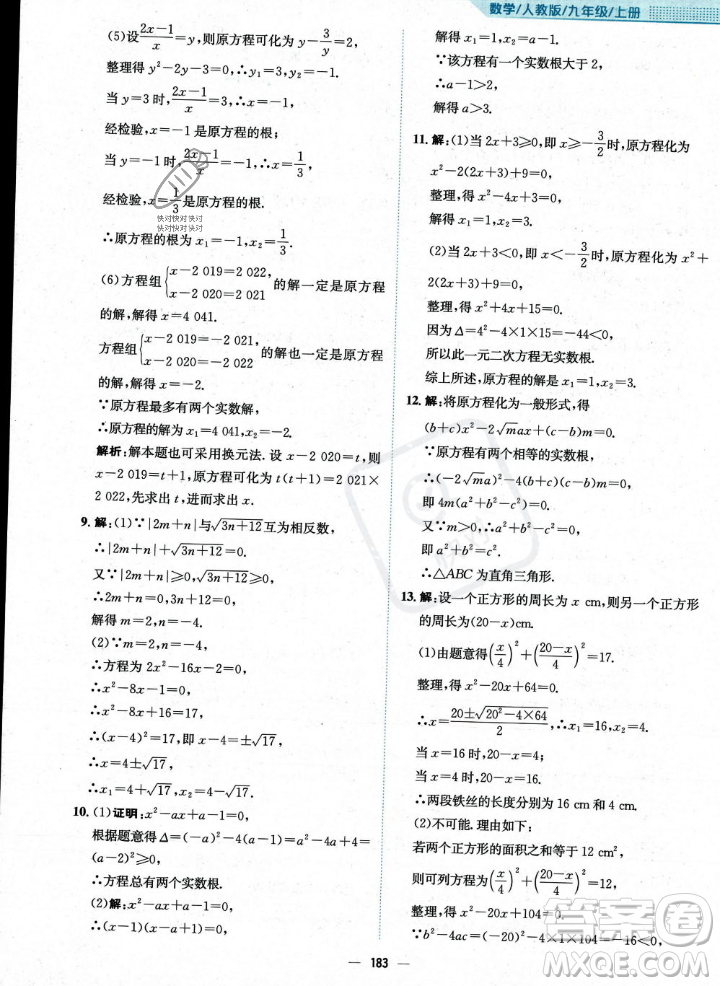 数学/人教版/九年级/上册
(5)设(2x-1)/x=y,则原方程可化为y-3/y=2,
整理得 y²-2y-3=0,∴y₁=3,y₂=-1.
当 y=3时,(2x-1)/x=3,∴x=-1,
经检验,x=-1是原方程的根;
当 y=-1时,(2x-1)/x=-1,∴x=1/3,
经检验,x=1/3是原方程的根.
快对快对快对
快对快对快对
∴原方程的根为 x₁=-1,x₂=1/3.
(6)方程组{x-2 019=2 022,
x-2 020=2 021的解一定是原方程
的解,解得 x=4 041.
方程组{x-2 019=-2 021,
x-2 020=-2 022的解也一定是原方程
的解,解得 x=-2.
∵原方程最多有两个实数解,
∴原方程的解为 x₁=4 041,x₂=-2.
解析:解本题也可采用换元法.设 x-2 020=t,则
x-2 019=t+1,原方程可化为 t(t+1)=2 021×
2 022,先求出 t,进而求出 x.
9. 解:(1)∵|2m+n|与√(3n+12)互为相反数,
∴|2m+n|+√(3n+12)=0.
又∵|2m+n|≥0,√(3n+12)≥0,
∴2m+n=0,3n+12=0,
解得 m=2,n=-4.
(2)∵m=2,n=-4,
∴方程为 2x²-16x-2=0,
∴x²-8x-1=0,
∴(x-4)²=17,
∴x=4±√17,
∴x₁=4+√17,x₂=4-√17.
10. (1)证明:x²-ax+a-1=0,
根据题意得Δ=(-a)²-4(a-1)=a²-4a+4=
(a-2)²≥0,
∴方程总有两个实数根.
(2)解:x²-ax+a-1=0,
∴(x-1)(x-a+1)=0,
∴x₁=1,x₂=a-1.
∵该方程有一个实数根大于 2,
∴a-1>2,
解得 a>3.
11. 解:(1)当 2x+3≥0,即 x≥-3/2时,原方程化为
x²-2(2x+3)+9=0,
整理,得 x²-4x+3=0,
解得 x₁=1,x₂=3.
(2)当 2x+3<0,即 x<-3/2时,原方程化为 x²+
2(2x+3)+9=0,
整理,得 x²+4x+15=0.
因为Δ=4²-4×1×15=-44<0,
所以此一元二次方程无实数根.
综上所述,原方程的解是 x₁=1,x₂=3.
12. 解:将原方程化为一般形式,得
(b+c)x²-2√m ax+(c-b)m=0.
∵原方程有两个相等的实数根,
∴(-2√m a)²-4(c+b)(c-b)m=0,
即 4m(a²-c²+b²)=0.
又∵m>0,∴a²-c²+b²=0,
即 a²+b²=c²,
∴△ABC为直角三角形.
13. 解:设一个正方形的周长为 x cm,则另一个正方形
的周长为(20-x)cm.
(1)由题意得(x/4)²+((20-x)/4)²=17.
整理,得 x²-20x+64=0,
∴x=(20±√(20²-4×64))/2,
∴x₁=16,x₂=4.
当 x=16时,20-x=4,
当 x=4时,20-x=16,
∴两段铁丝的长度分别为 16 cm和 4 cm.
(2)不可能.理由如下:
若两个正方形的面积之和等于 12 cm²,
则可列方程为(x/4)²+((20-x)/4)²=12,
整理,得 x²-20x+104=0,
∵b²-4ac=(-20)²-4×1×104=-16<0,
183
答案圈
MXQE.COM